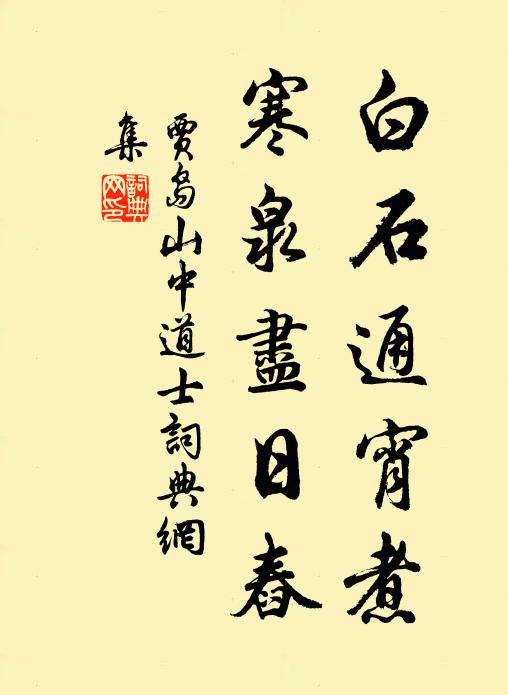 白石通宵煮
寒泉盡日舂
賈島山中道士詞典網
集
詞典網印